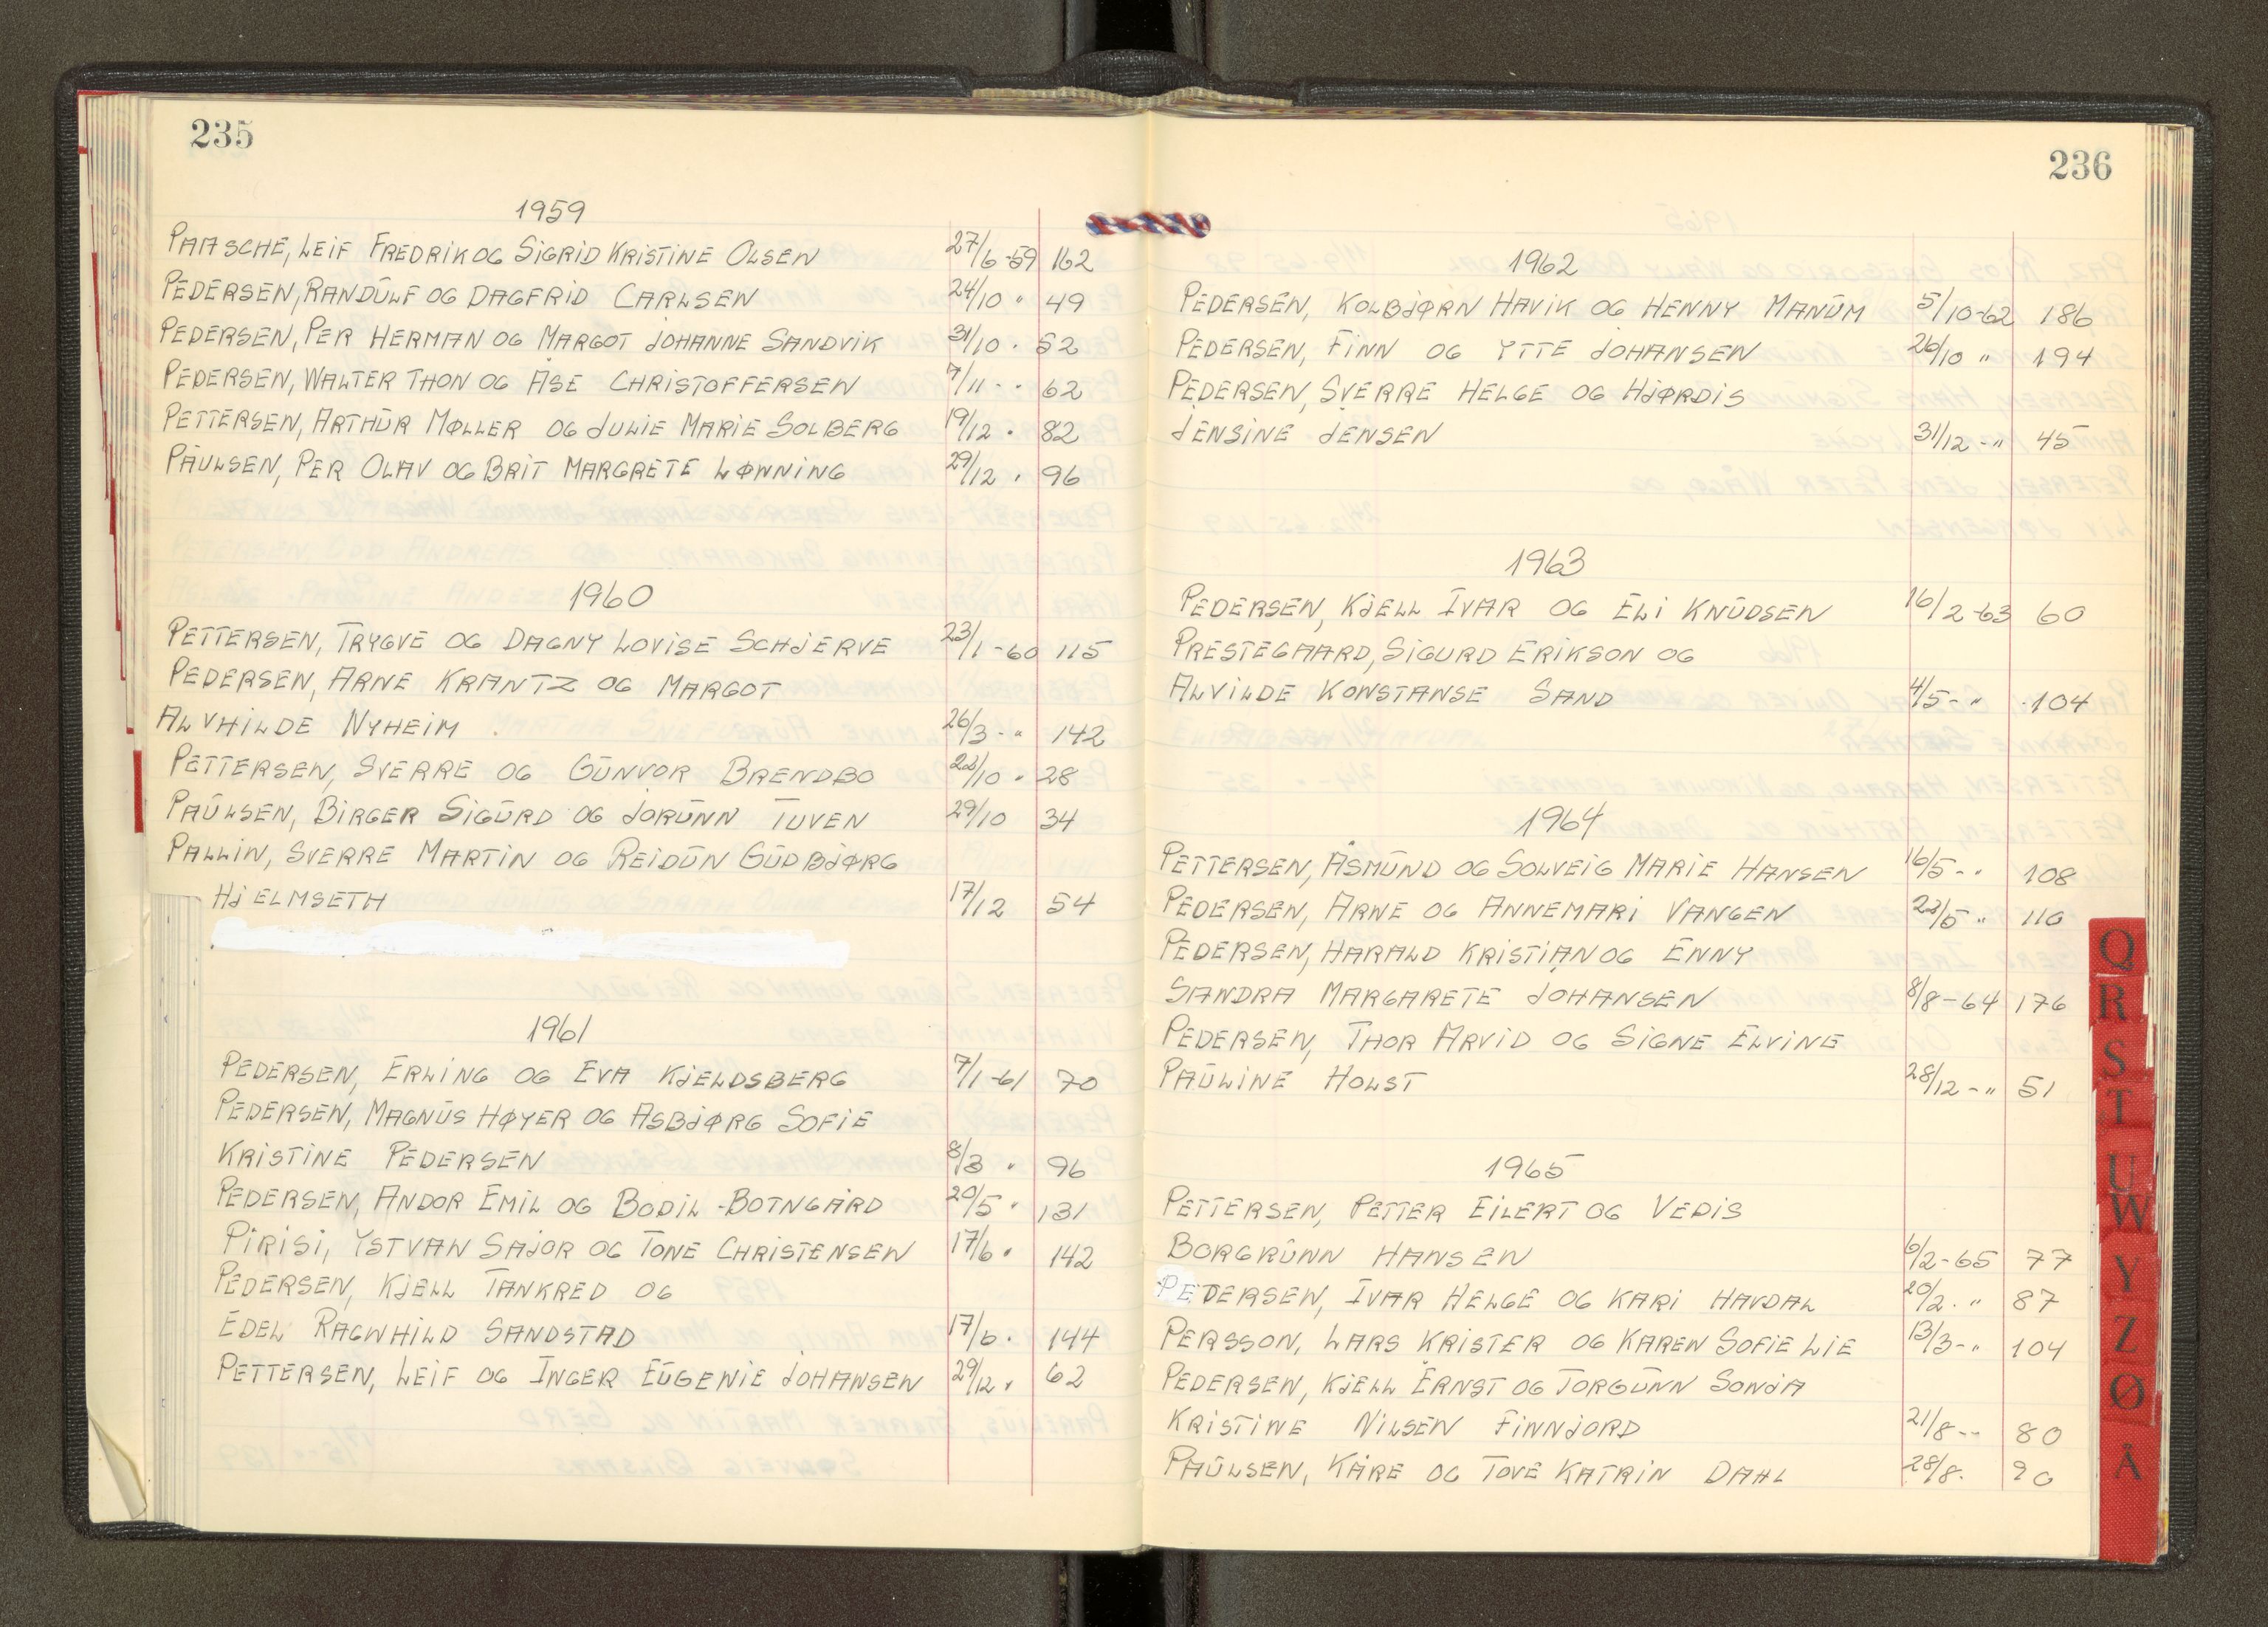 235
1959
PAASCHE, LEIF FREDRIK OG SIGRID KRISTINE OLSEN 27/6-59 162
PEDERSEN, RANDULF OG DAGFRID CARLSEN 24/10 " 49
PEDERSEN, PER HERMAN OG MARGOT JOHANNE SANDVIK 31/10 . 52
PEDERSEN, WALTER THON OG ÅSE CHRISTOFFERSEN 7/11 - . 62
PETTERSEN, ARTHUR MØLLER OG JULIE MARIE SOLBERG 19/12 . 82
PAULSEN, PER OLAV OG BRIT MARGRETE LØNNING 29/12 . 96
1960
PETTERSEN, TRYGVE OG DAGNY LOVISE SCHJERVE 23/1-60 115
PEDERSEN, ARNE KRANTZ OG MARGOT
ALVHILDE NYHEIM 26/3 - " 142
PETTERSEN, SVERRE OG GUNVOR BRENDBO 22/10 . 28
PAULSEN, BIRGER SIGURD OG JORUNN TUVEN 29/10 34
PALLIN, SVERRE MARTIN OG REIDUN GUDBJØRG
HJELMSETH 17/12 54
1961
PEDERSEN, ERLING OG EVA KJELDSBERG 7/1-61 70
PEDERSEN, MAGNUS HØYER OG ASBJØRG SOFIE
KRISTINE PEDERSEN 8/3 . 96
PEDERSEN, ANDOR EMIL OG BODIL BOTNGÅRD 20/5 . 131
PIRISI, YSTVAN SAJOR OG TONE CHRISTENSEN 17/6 . 142
PEDERSEN, KJELL TANKRED OG
EDEL RAGNHILD SANDSTAD 17/6 . 144
PETTERSEN, LEIF OG INGER EUGENIE JOHANSEN 29/12 . 62
236
1962
PEDERSEN, KOLBJØRN HAVIK OG HENNY MANUM 5/10-62 186
PEDERSEN, FINN OG YTTE JOHANSEN 26/10 " 194
PEDERSEN, SVERRE HELGE OG HJØRDIS
JENSINE JENSEN 31/12 - " 45
1963
PEDERSEN, KJELL IVAR OG ELI KNUDSEN 16/2-63 60
PRESTEGAARD, SIGURD ERIKSON OG
ALVILDE KONSTANSE SAND 4/5 - " 104
1964
PETTERSEN, ÅSMUND OG SOLVEIG MARIE HANSEN 16/5 - . 108
PEDERSEN, ARNE OG ANNEMARI VANGEN 23/5 " 110
PEDERSEN, HARALD KRISTIAN OG ENNY
SANDRA MARGARETE JOHANSEN 8/8-64 176
PEDERSEN, THOR ARVID OG SIGNE ELVINE
PAULINE HOLST 28/12 - " 51
1965
PETTERSEN, PETTER EILERT OG VEDIS
BORGRUNN HANSEN 6/2-65 77
PEDERSEN, IVAR HELGE OG KARI HAVDAL 20/2 . " 87
PERSSON, LARS KRISTER OG KAREN SOFIE LIE 13/3 - " 104
PEDERSEN, KJELL ERNST OG TORGUNN SONJA
KRISTINE NILSEN FINNJORD 21/8 -- 80
PAULSEN, KÅRE OG TOVE KATRIN DAHL 28/8 . 90
Q
R
S
T
U
W
Y
Z
Ø
Å